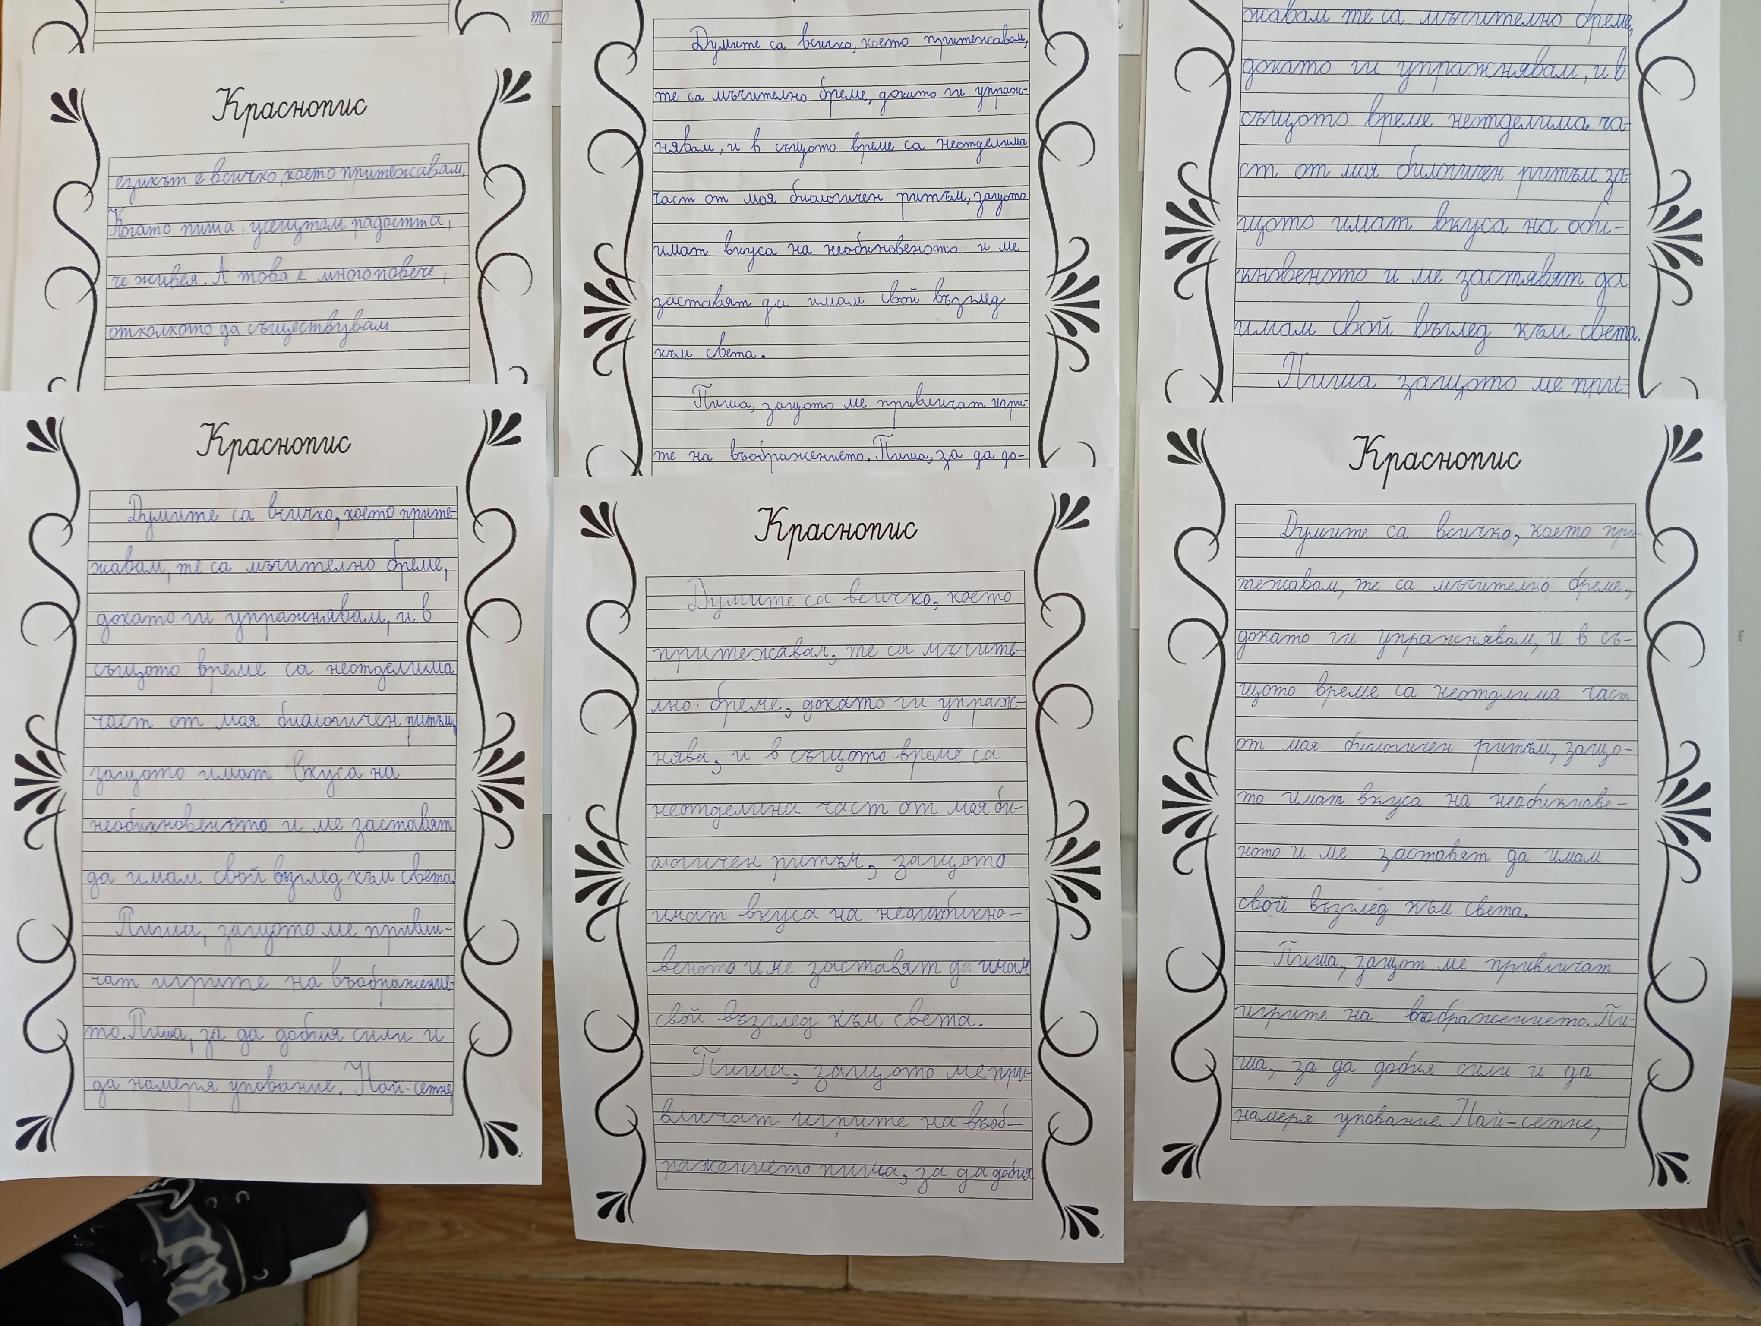 то
Краснопис
езикът е всичко, което притежавам.
Когато пиша, усещам радостта,
че живея. А това е много повече,
отколкото да съществувам
Думите са всичко, което притежавам,
те са мъчително бреме, докато ги упраж-
нявам, и в същото време са неотделима
част от моя биологичен ритъм, защото
имат вкуса на необикновеното и ме
заставят да имам свой възглед
към света.
Пиша, защото ме привличат игри-
те на въображението. Пиша, за да до-
жавам те са мъчително бреме,
докато ги упражнявам, и в
същото време неотделима ча-
ст от моя билогичен ритъм за-
щото имат вкуса на оби-
кновеното и ме застявят да
имам свой възлед към света.
Пиша защото ме при-
Краснопис
Думите са всичко, което прите-
жавам, те са мъчително бреме,
докато ги упражнявам, и в
същото време са неотделима
част от моя биологичен ритъм,
защото имат вкуса на
необикновеното и ме заставят
да имам свой възглед към света.
Пиша, защото ме привли-
чат игрите на въображение-
то. Пиша, за да добия сили и
да намеря упование. Най-сетне,
Краснопис
Думите са всичко, което
притежавал, те са мъчите-
лно бреме, докато ги упраж-
нява, и в същото време са
неотделина част от моя би-
ологичен ритъм, защото
имат вкуса на
веното и ме заставят да имам
свой възглед към света.
Пиша, защото ме при-
вличат игрите на въоб-
ражението пиша, за да добия
Краснопис
Думите са всичко, което при-
тежавам, те са мъчително бреме,
докато ги упражнявам, и в съ-
щото време са неотделима част
от моя биологичен ритъм, защо-
то имат вкуса на необикнове-
ното и ме заставят да имам
свой възглед към света.
Пиша, защот ме привличат
игрите на въображението. Пи-
ша, за да добия сили и да
намеря упование. Най-сетне,